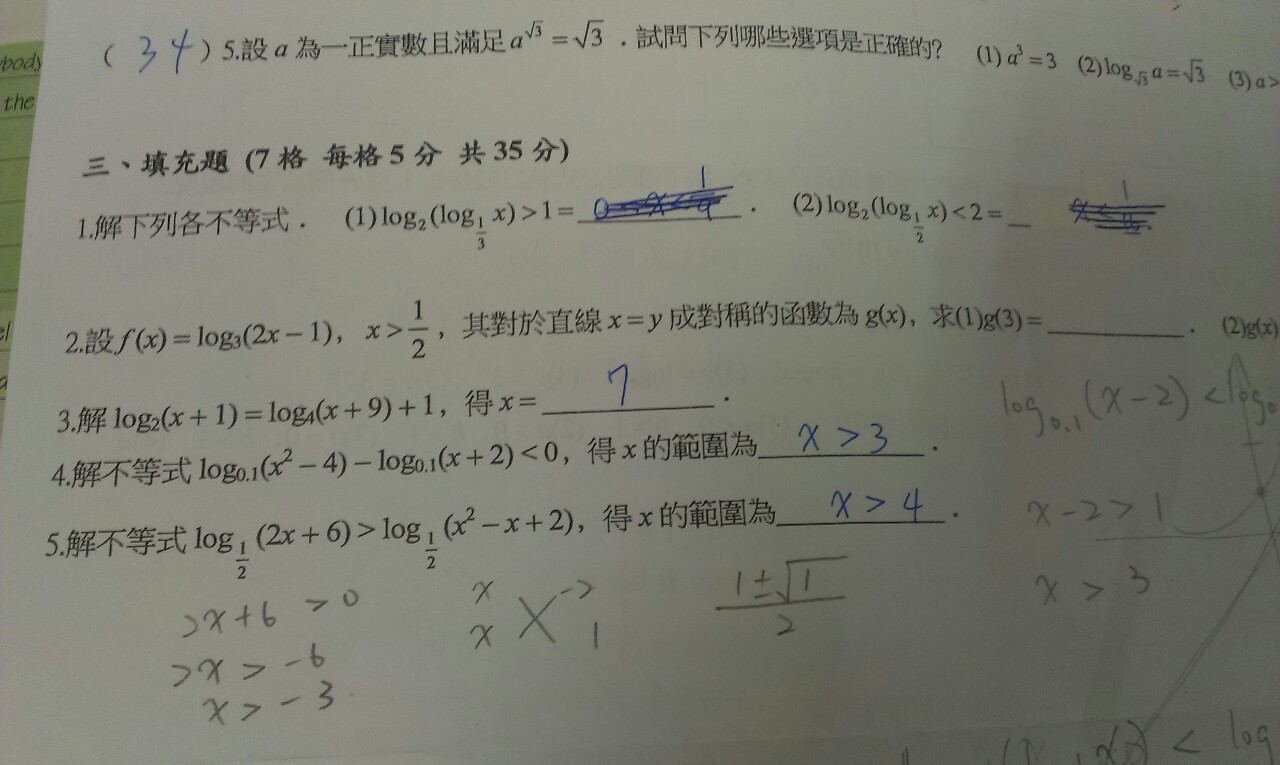 body
the
( 3 4 ) 5.設 a 為一正實數且滿足 a^√3 = √3 . 試問下列哪些選項是正確的? (1) a³ = 3 (2) log_√3 a = √3 (3) a >
三、填充題 (7 格 每格 5 分 共 35 分)
1.解下列各不等式. (1) log₂(log_1/3 x) > 1 = . (2) log₂(log_1/2 x) < 2 =
2.設 f(x) = log₃(2x − 1), x > 1/2, 其對於直線 x = y 成對稱的函數為 g(x), 求(1)g(3) = ________. (2)g(x)
3.解 log₂(x + 1) = log₄(x + 9) + 1, 得 x = 7 .
log0.1 (x − 2) < log0
4.解不等式 log0.1(x² − 4) − log0.1(x + 2) < 0, 得 x 的範圍為 x > 3 .
x − 2 > 1
5.解不等式 log_1/2 (2x + 6) > log_1/2 (x² − x + 2), 得 x 的範圍為 x > 4 .
x > 3
2x + 6 > 0
x −2
x 1
1 ± √1 / 2
2x > −6
x > −3
< log